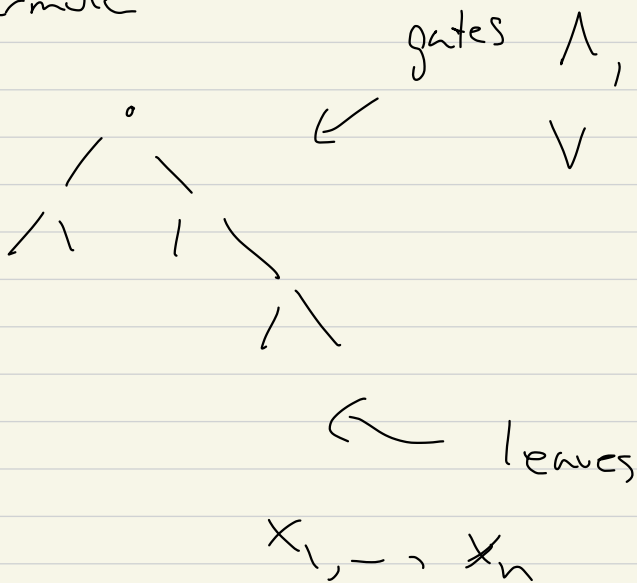 gates ∧,
∨
leaves
x₁, – , xₙ